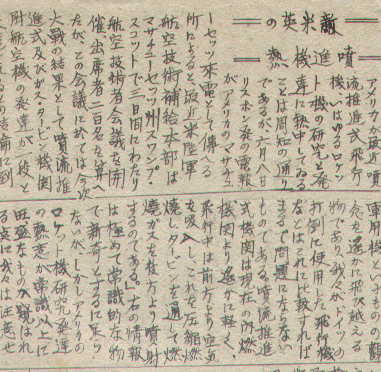 敵米英の
噴進機熱
アメリカが最近噴
流推進式飛行
機いはゆるロケッ
ト機の研究と発
達に熱中してゐる
ことは周知の通り
であるが六月八日
リスボン発の電報
がアメリカのマサチュ
ーセッツ来電として傳へる
所によると最近米陸軍
航空技術補給本部は
マサチューセッツ州スワンプ・
スコットで三日間にわたり
航空技術者会議を開
催出席者二百名を算へ
たがこの会議に於ては今次
大戰の結果として噴流推
進式及びガス・タービン機関
附航空機の発達が後と
軍用機としての観
念を遥かに飛び越える
物であり、我々がドイツの
打倒に使用した飛行機
などはこれに比較すれば
まるで問題にならない
ものである。噴流推進
式機関は現在の内燃
機関より遥かに軽く、
飛行中は前方より空気
を吸入し、これを圧縮燃
焼しタービンを通して燃
焼ガスを後方より噴射
するのである」右の情報
は極めて常識的な物
で新奇とするに足ら
ないがしかしアメリカの
ロケット機研究発達
の熱意が常識以上に
旺盛なものが覗はれ
る点に我々は注意せ